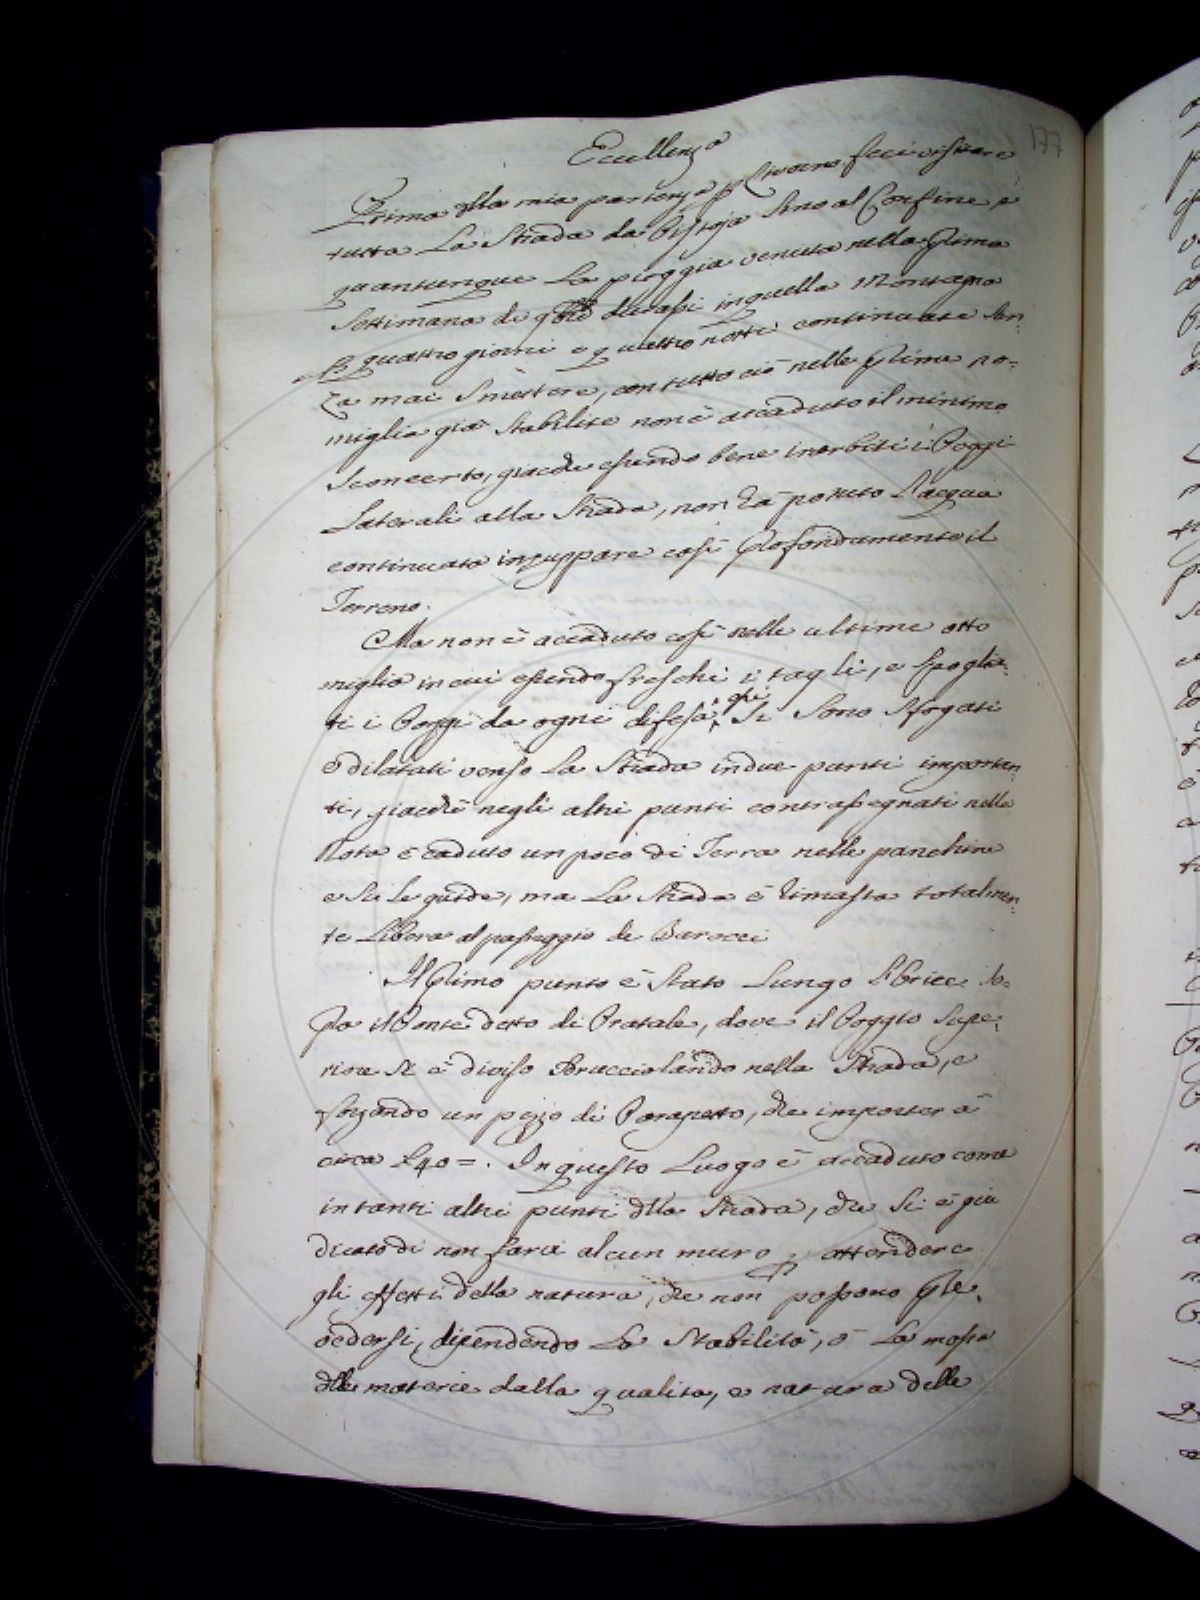 177
Eccellenza
Prima della mia partenza p Livorno feci visitare
tutta La Strada da Pistoja Sino al Confine, e
quantunque La pioggia venuta nella prima
Settimana di durasse in quella Montagna
p quattro giorni e quattro notti continuate Sen:
za mai Smettere, con tutto ciò nelle prime no=
miglia già Stabilite non è accaduto il minimo
Sconcerto, giacche essendo bene inerbiti i Poggi
Laterali alla Strada, non ha potuto L'acqua
continuata inzuppare così profondamente il
Terreno.
Ma non è accaduto così nelle ultime otto
miglia in cui essendo freschi i tagli, e Spoglia:
ti i Poggi da ogni difesa, qui Si Sono Sfogati
e dilatati verso La Strada in due punti importan:
ti, giacchè negli altri punti contrassegnati nella
Nota è caduto un poco di Terra nelle panchine
e Su Le guide, ma La Strada è rimasta totalmen:
te Libera al passeggio de Barocci
Il primo punto è Stato Lungo do=
po il Ponte detto di Pratale, dove il Poggio Supe:
riore Si è diviso Sbrucciolando nella Strada, e
forzando un pezzo di Parapetto, che importerà
circa £40=. In questo Luogo è accaduto come
in tanti altri punti della Strada, che Si è giu
dicato di non farci alcun muro p attendere
gli effetti della natura, che non possono pre:
vedersi, dipendendo La Stabilità, ò La mossa
delle materie dalla qualità, e natura delle